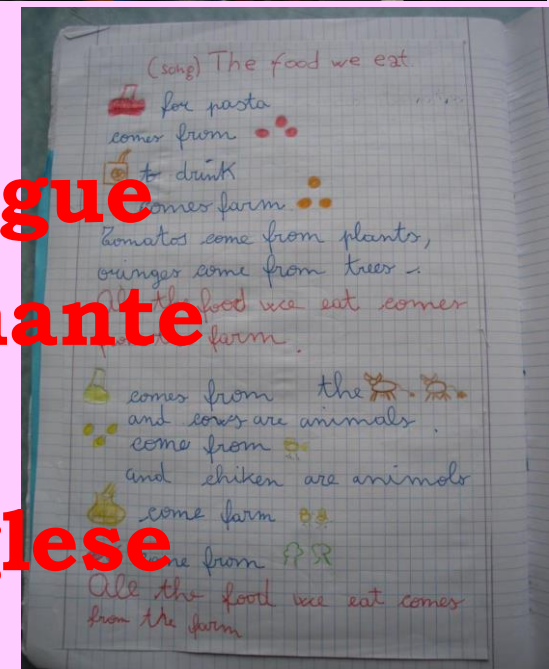 (song) The food we eat
for pasta
comes from
to drink
gue
comes farm
Tomatos come from plants,
oringes come from trees -.
All the food we eat comes
nante
from the farm.
comes from the
and cows are animals.
come from
and chiken are animals
come farm
glese
come from
All the food we eat comes
from the farm